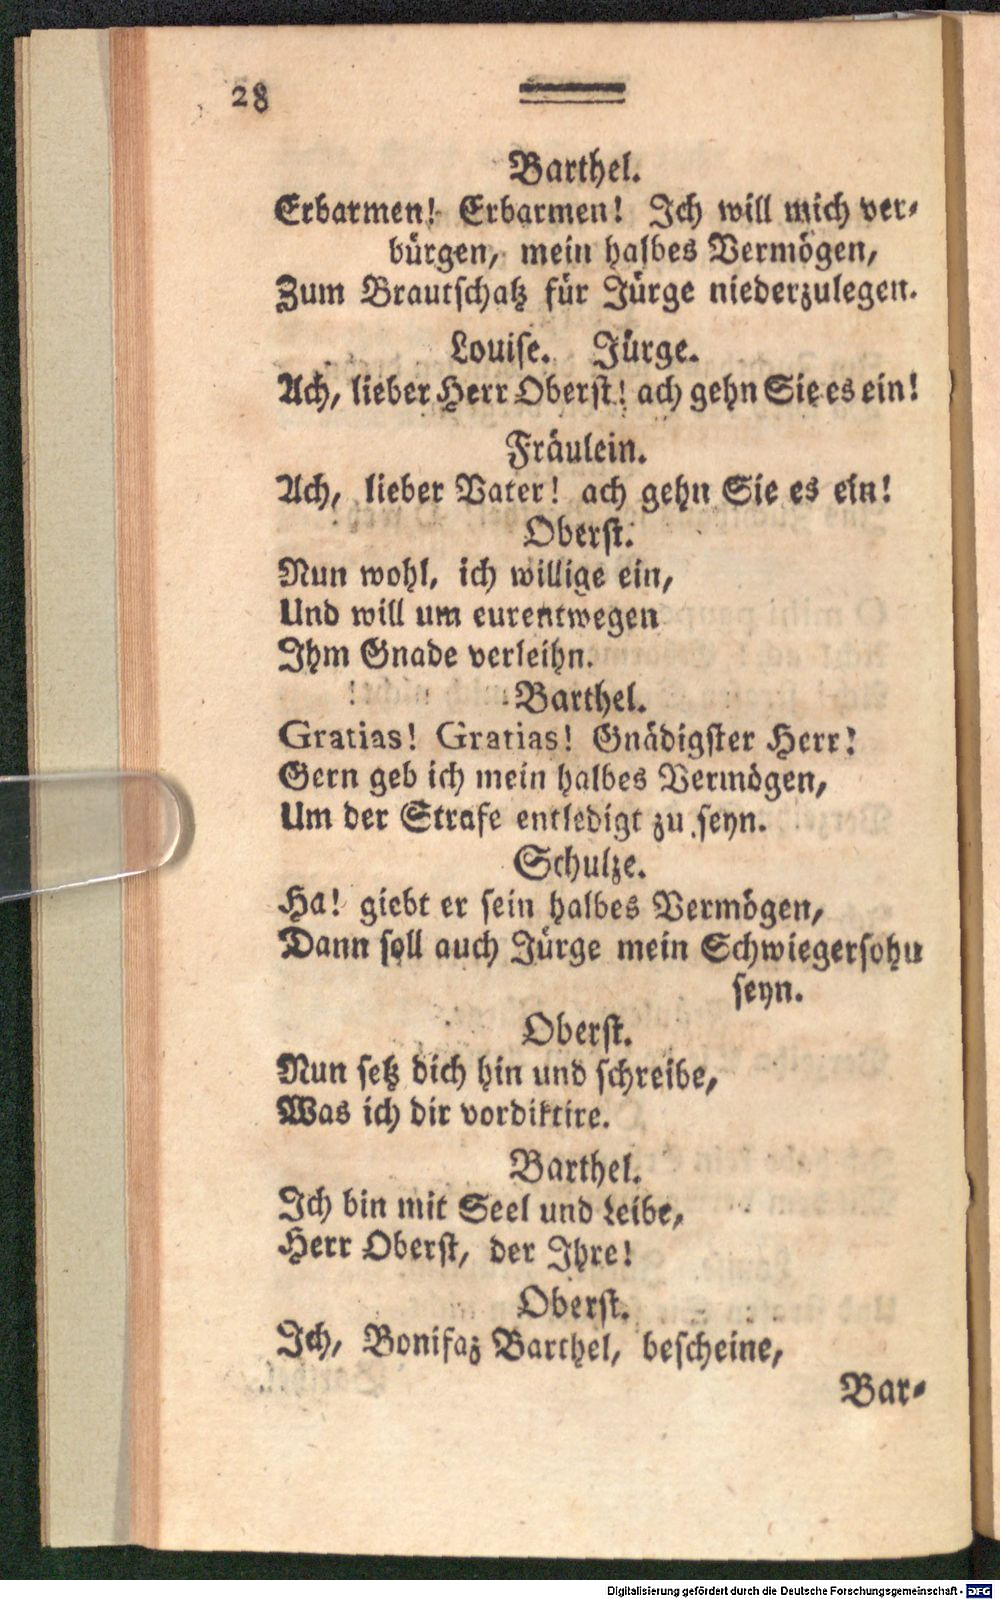 28
Barthel.
Erbarmen! Erbarmen! Ich will mich ver-
bürgen, mein halbes Vermögen,
Zum Brautschatz für Jürge niederzulegen.
Louise. Jürge.
Ach, lieber Herr Oberst! ach gehn Sie es ein!
Fräulein.
Ach, lieber Vater! ach gehn Sie es ein!
Oberst.
Nun wohl, ich willige ein,
Und will um eurentwegen
Ihm Gnade verleihn.
Barthel.
Gratias! Gratias! Gnädigster Herr!
Gern geb ich mein halbes Vermögen,
Um der Strafe entledigt zu seyn.
Schulze.
Ha! giebt er sein halbes Vermögen,
Dann soll auch Jürge mein Schwiegersohn
seyn.
Oberst.
Nun setz dich hin und schreibe,
Was ich dir vordiktire.
Barthel.
Ich bin mit Seel und Leibe,
Herr Oberst, der Ihre!
Oberst.
Ich, Bonifaz Barthel, bescheine,
Bar-
Digitalisierung gefördert durch die Deutsche Forschungsgemeinschaft - DFG